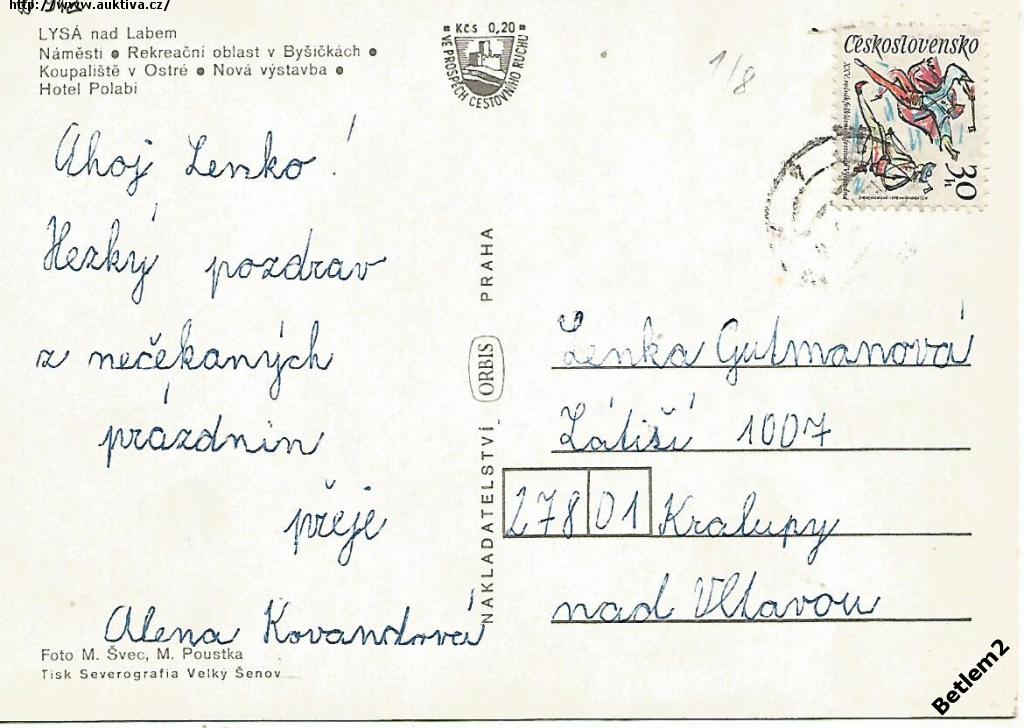 http://www.auktiva.cz/
LYSÁ nad Labem
Náměsti • Rekreační oblast v Byšičkách •
Koupaliště v Ostré • Nová výstavba •
Hotel Polabi
Kčs 0,20
VE PROSPĚCH CESTOVNÍHO RUCHU
1/8
Československo
30 h
Ahoj Lenko!
Hezký pozdrav
z nečekaných
prázdnin
přeje
Alena Kovandová
NAKLADATELSTVÍ ORBIS PRAHA
Lenka Gutmanová
Zátiší 1007
278 01 Kralupy
nad Vltavou
Foto M. Švec, M. Poustka
Tisk Severografia Velký Šenov
Betlem2